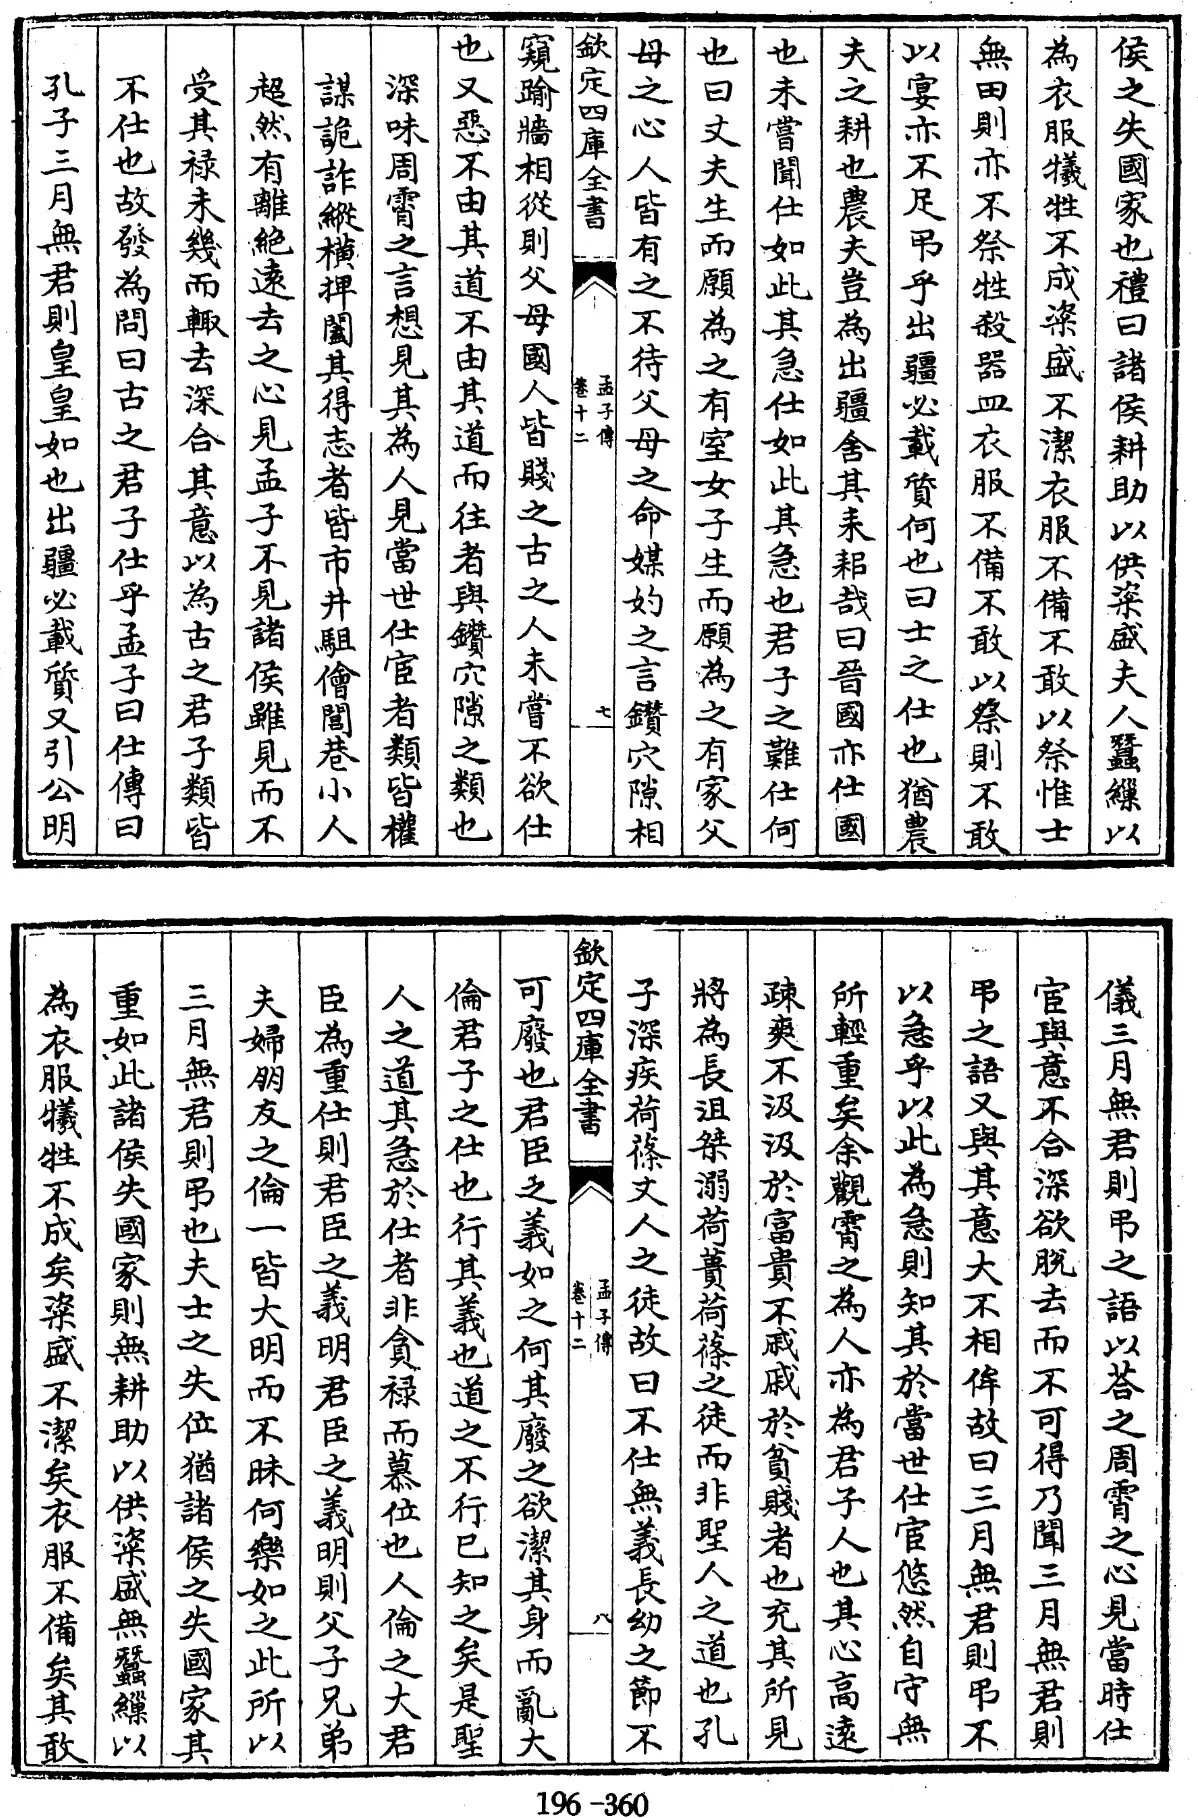 侯之失國家也禮曰諸侯耕助以供粢盛夫人蠶繅以
為衣服犧牲不成粢盛不潔衣服不備不敢以祭惟士
無田則亦不祭牲殺器皿衣服不備不敢以祭則不敢
以宴亦不足弔乎出疆必載質何也曰士之仕也猶農
夫之耕也農夫豈為出疆舍其耒耜哉曰晉國亦仕國
也未嘗聞仕如此其急仕如此其急也君子之難仕何
也曰丈夫生而願為之有室女子生而願為之有家父
母之心人皆有之不待父母之命媒妁之言鑽穴隙相
欽定四庫全書
孟子傳
卷十二
七
窺踰牆相從則父母國人皆賤之古之人未嘗不欲仕
也又惡不由其道不由其道而往者與鑽穴隙之類也
深味周霄之言想見其為人見當世仕宦者類皆權
謀詭詐縱橫捭闔其得志者皆市井駔儈閭巷小人
超然有離絶遠去之心見孟子不見諸侯雖見而不
受其禄未幾而輙去深合其意以為古之君子類皆
不仕也故發為問曰古之君子仕乎孟子曰仕傳曰
孔子三月無君則皇皇如也出疆必載質又引公明
儀三月無君則弔之語以荅之周霄之心見當時仕
宦與意不合深欲脫去而不可得乃聞三月無君則
弔之語又與其意大不相侔故曰三月無君則弔不
以急乎以此為急則知其於當世仕宦悠然自守無
所輕重矣余觀霄之為人亦為君子人也其心高遠
疎爽不汲汲於富貴不戚戚於貧賤者也充其所見
將為長沮桀溺荷蕢荷蓧之徒而非聖人之道也孔
子深疾荷蓧丈人之徒故曰不仕無義長幼之節不
欽定四庫全書
孟子傳
卷十二
八
可廢也君臣之義如之何其廢之欲潔其身而亂大
倫君子之仕也行其義也道之不行已知之矣是聖
人之道其急於仕者非貪禄而慕位也人倫之大君
臣為重仕則君臣之義明君臣之義明則父子兄弟
夫婦朋友之倫一皆大明而不昧何樂如之此所以
三月無君則弔也夫士之失位猶諸侯之失國家其
重如此諸侯失國家則無耕助以供粢盛無蠶繅以
為衣服犧牲不成矣粢盛不潔矣衣服不備矣其敢
196-360